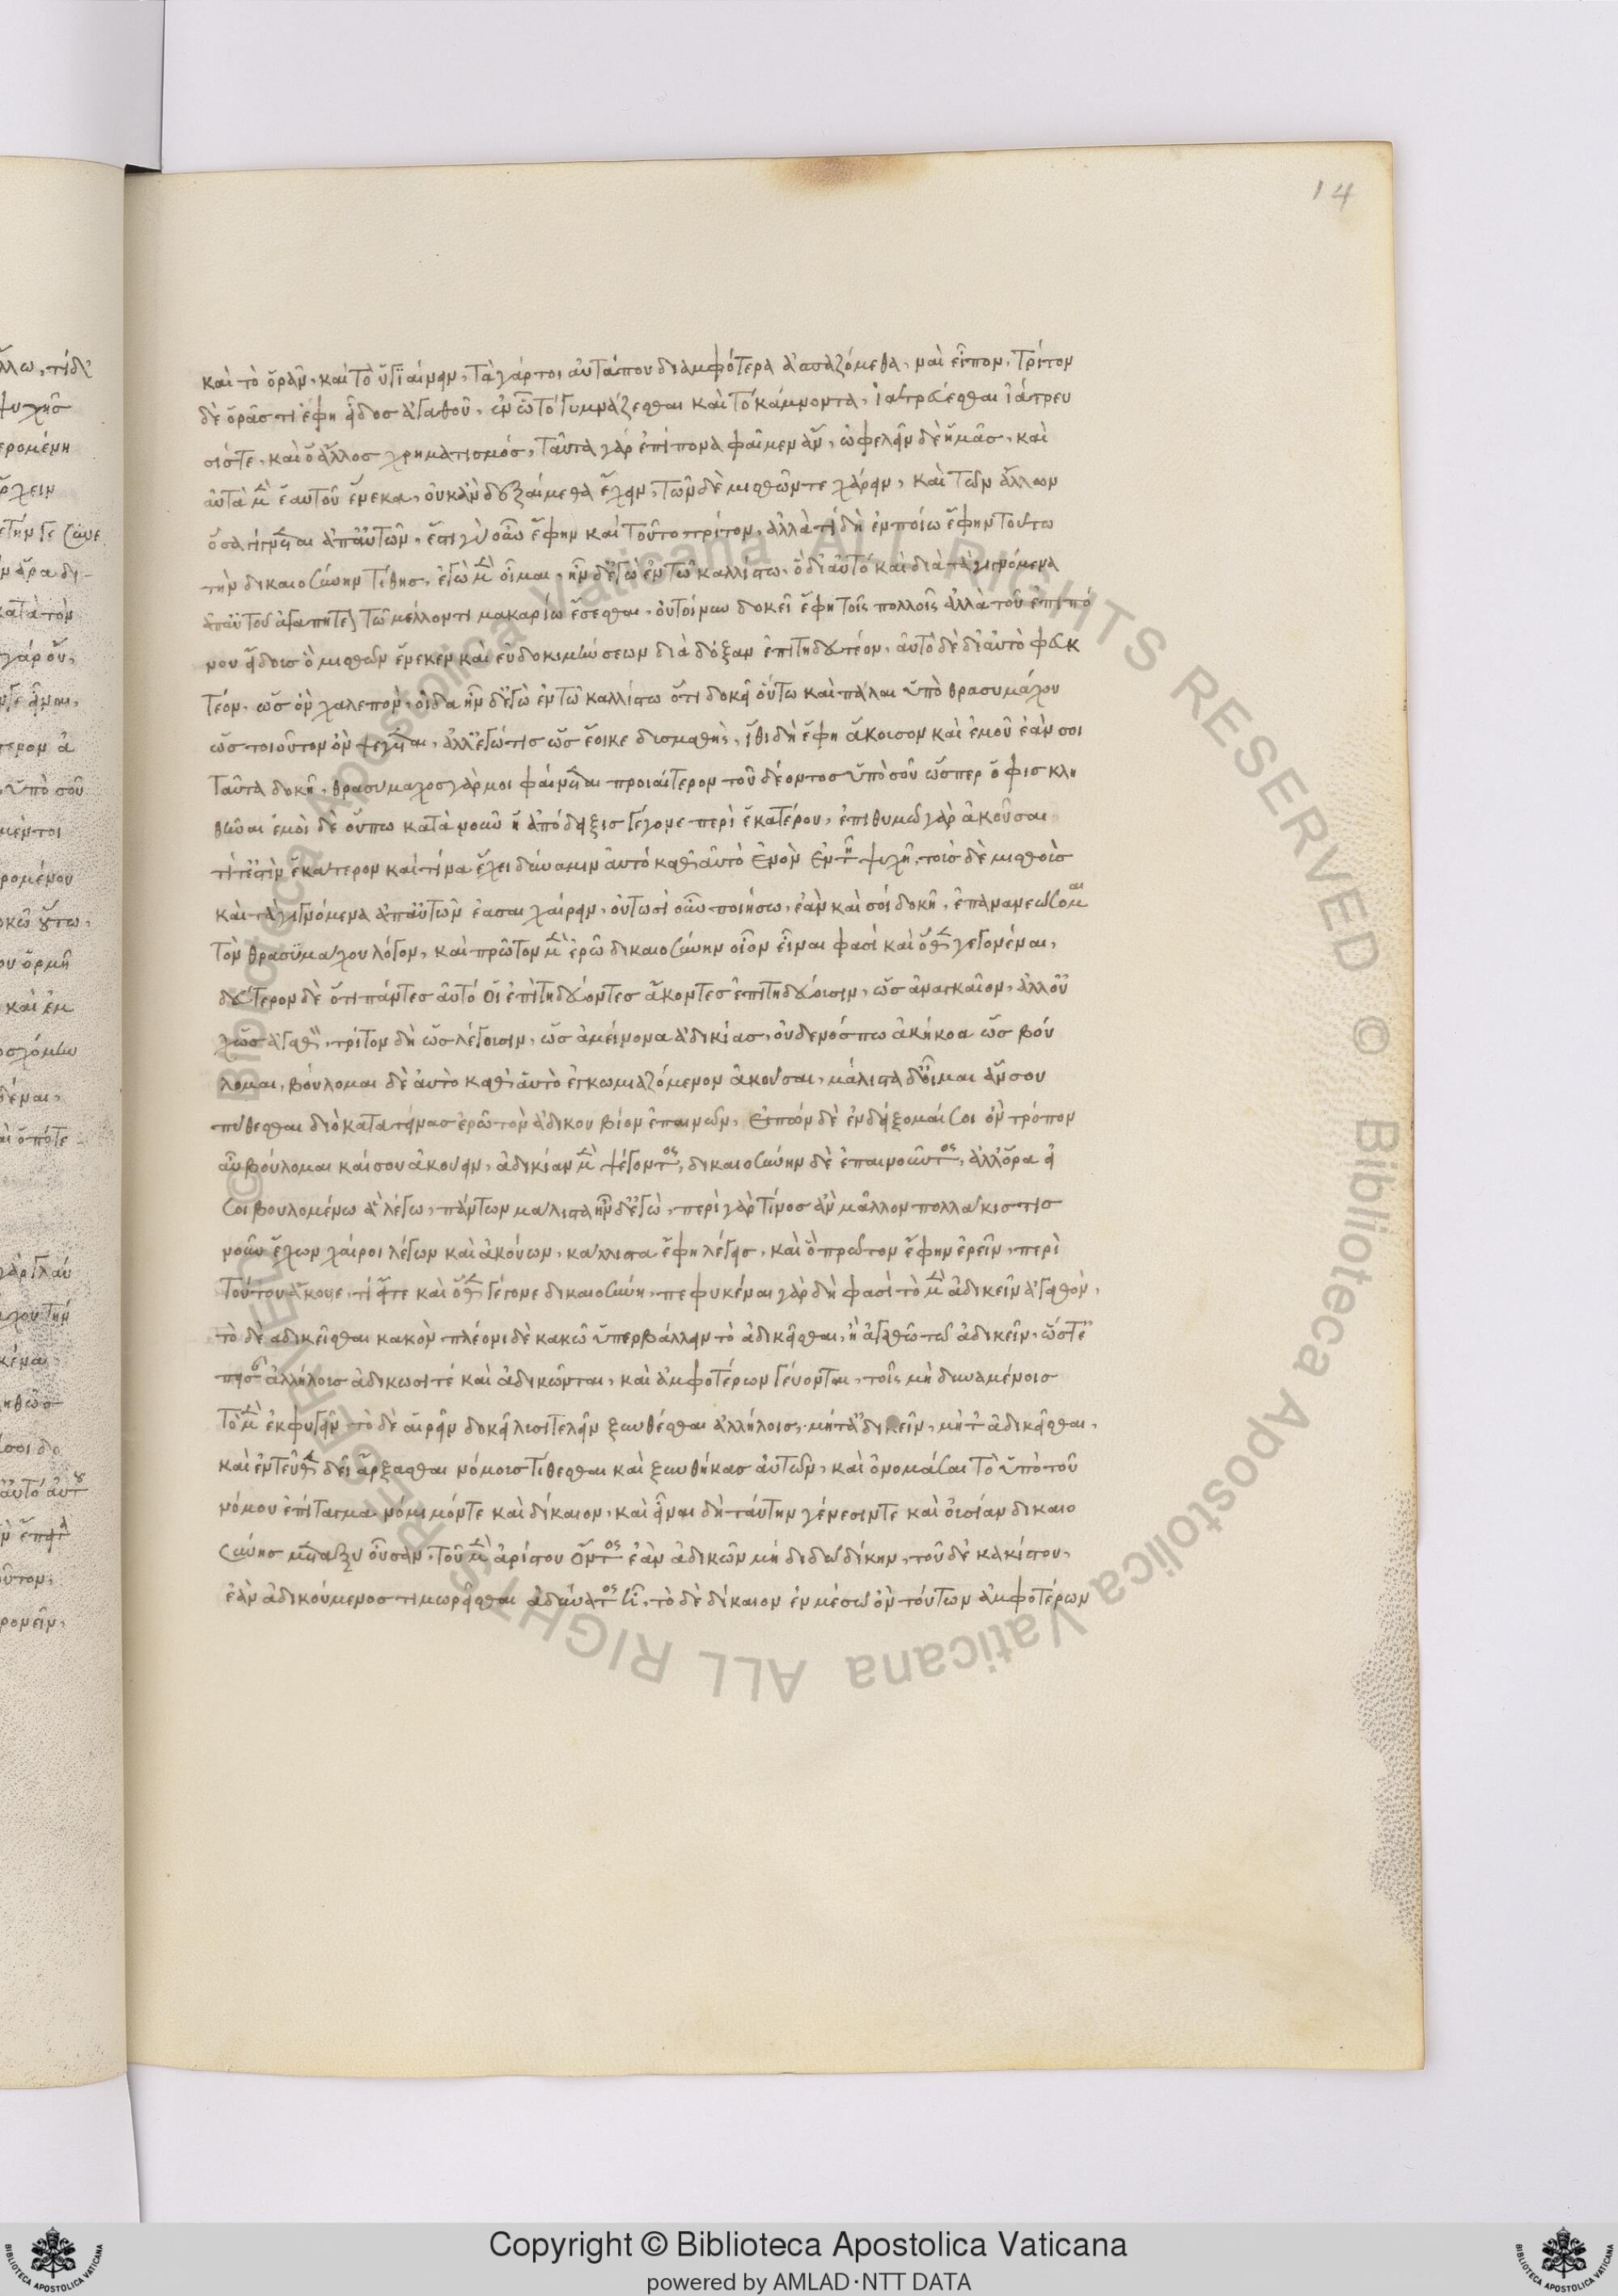 14
καὶ τὸ ὅρᾶν, καὶ τὸ ὕγϊαίνειν, τὰ γάρ τοι αὐτά που διαμφότερα ἀσπαζόμεθα, ναὶ εἶπον, τρίτον
δὲ ὅρᾶσ τι ἔφη εἶδοσ ἀγαθοῦ, ἐν ὧ τὸ γυμνάζεσθαι καὶ τὸ κάμνοντα, ἰατρεύεσθαι ἰάτρευ
σίστε, καὶ ὅ ἄλλοσ χρηματισμόσ, ταῦτα γὰρ ἐπίπονα φαῖμεν ἄν, ὠφελεῖν δὲ ἥμᾶσ, καὶ
αὐτὰ μὲν ἕαυτοῦ ἕνεκα, οὐκ ἂν δεξαίμεθα ἔχειν, τῶν δὲ μισθῶν τε χάρειν, καὶ τῶν ἄλλων
ὅσα γίγνεται ἀπ᾽ αὐτῶν, ἔστι γὰρ οὖν ἔφην καὶ τοῦτο τρίτον, ἀλλὰ τί δὴ ἐν ποίω ἔφην τούτω
τὴν δικαιοσύνην τίθησ, ἐγὼ μὲν οἶμαι, ἦν δ᾽ ἐγὼ ἐν τῶ καλλίστω, ὅ δι᾽ αὐτό καὶ διὰ τὰ γιγνόμενα
ἀπ᾽ αὐτοῦ ἀγαπητέον τῶ μέλλοντι μακαρίω ἔσεσθαι, οὐ τοίνυν δοκεῖ ἔφη τοῖς πολλοῖς ἀλλὰ τοῦ ἐπιπό
νου εἴδοισ ὃ μισθῶν ἕνεκεν καὶ εὐδοκιμήσεων διὰ δόξαν ἐπιτηδευτέον, αὐτὸ δὲ δι᾽ αὐτὸ φευκ
τέον, ὧσ ὂν χαλεπὸν, οἶδα ἦν δ᾽ ἐγὼ ἐν τῶ καλλίστω ὅτι δοκεῖ οὕτω καὶ πάλαι ὕπὸ θρασυμάχου
ὧσ τοιοῦτον ὂν ψέγεται, ἀλλ᾽ ἐγώ τισ ὧσ ἔοικε δισμαθὴς, ἴθι δὴ ἔφη ἄκοισον καὶ ἐμοῦ ἐάν σοι
ταῦτα δοκῆ, θρασυμαχοσ γάρ μοι φαίνεται προιαίτερον τοῦ δέοντοσ ὕπὸ σοῦ ὧσπερ ὄφισ κλη
θῆναι ἐμοὶ δὲ οὔπω κατὰ νοῦν ἥ ἀπόδειξισ γέγονε περὶ ἕκατέρου, ἐπιθυμῶ γὰρ ἀκοῦσαι
τί τ᾽ ἐστὶν ἕκάτερον καὶ τίνα ἔχει δύναμιν αὐτὸ καθ᾽ αὑτὸ ἐνὸν ἐν τῆ ψυχῆ, τοισ δὲ μισθοὶσ
καὶ τὰ γιγνόμενα ἀπ᾽ αὐτῶν ἐασαι χαίρειν, οὑτωσὶ οὖν ποιήσω, ἐὰν καὶ σοὶ δοκῆ, ἐπανανεώσομαι
τὸν θρασυμάχου λόγον, καὶ πρῶτον μὲν ἐρῶ δικαιοσύνην οἷον εἶναι φασὶ καὶ ὅθεν γεγονέναι,
δεύτερον δὲ ὅτι πάντεσ αὐτὸ οἱ ἐπιτηδεύοντεσ ἄκοντεσ ἐπιτηδεύοισιν, ὧσ ἀναγκαῖον, ἀλλ᾽ οὐ
χὧσ ἀγαθὸν, τρίτον δὴ ὧσ λέγοισιν, ὧσ ἀμείνονα ἀδικίασ, οὐδενόσ πω ἀκήκοα ὧσ βού
λομαι, βούλομαι δὲ ἀυτὸ καθ᾽ αὑτὸ ἐγκωμιαζόμενον ἀκοῦσαι, μάλιστα δ᾽ οἶμαι ἄν σου
πύθεσθαι διὸ κατατείνασ ἐρῶ τὸν ἄδικου βίον ἐπαινῶν, εἰπὼν δὲ ἐνδείξομαί σοι ὃν τρόπον
αὖ βούλομαι καί σου ἀκούειν, ἀδικίαν μὲν ψέγοντος, δικαιοσύνην δὲ ἐπαινοῦντος, ἀλλ᾽ ὅρα εἴ
σοι βουλομένω ἃ λέγω, πάντων μάλιστα ἦν δ᾽ ἐγὼ, περὶ γὰρ τίνοσ ἂν μᾶλλον πολλάκισ τισ
νοῦν ἔχων χαίροι λέγων καὶ ἀκούων, κάλλιστα ἔφη λέγεισ, καὶ ὃ πρῶτον ἔφην ἐρεῖν, περὶ
τούτου ἄκουε, τί εἶτε καὶ ὅθεν γέγονε δικαιοσύνη, πεφυκέναι γὰρ δὴ φασὶ τὸ μὲν ἀδικεῖν ἀγαθὸν,
τὸ δὲ ἀδικεῖσθαι κακὸν πλέονι δὲ κακῶ ὕπερβάλλειν τὸ ἀδικεῖσθαι, ἢ ἀγαθῶ τῶ ἀδικεῖν, ὥστ᾽ ἐ
πησὰν ἀλλήλοισ ἀδικωσι τέ καὶ ἀδικῶνται, καὶ ἀμφοτέρων γεύονται, τοῖς μὴ δυναμένοισ
τὸ μὲν ἐκφυγεῖν τὸ δὲ αἱρεῖν δοκεῖ λισιτελεῖν ξυνθέσθαι ἀλλήλοισ, μήτ᾽ ἀδικεῖν, μήτ᾽ ἀδικεῖσθαι,
καὶ ἐντεῦθεν δεῖ ἄρξασθαι νόμοισ τίθεσθαι καὶ ξυνθήκασ αὑτῶν, καὶ ὀνομάσαι τὸ ὕπὸ τοῦ
νόμου ἐπίταγμα νόμιμόν τε καὶ δίκαιον, καὶ εἶναι δὴ ταύτην γένεσιν τε καὶ οἰσίαν δικαιο
σύνησ μεταξὺ οὖσαν, τοῦ μὲν ἀρίστου ὄντος ἐὰν ἀδικῶν μὴ διδῶ δίκην, τοῦ δὲ κακίστου,
ἐὰν ἀδικούμενοσ τιμωρεῖσθαι ἀδύνατος ἦ, τὸ δὲ δίκαιον ἐν μέσω ὂν τούτων ἀμφοτέρων
© Biblioteca Apostolica Vaticana ALL RIGHTS RESERVED © Biblioteca Apostolica Vaticana ALL RIGHTS RESERVED
Copyright © Biblioteca Apostolica Vaticana
powered by AMLAD·NTT DATA